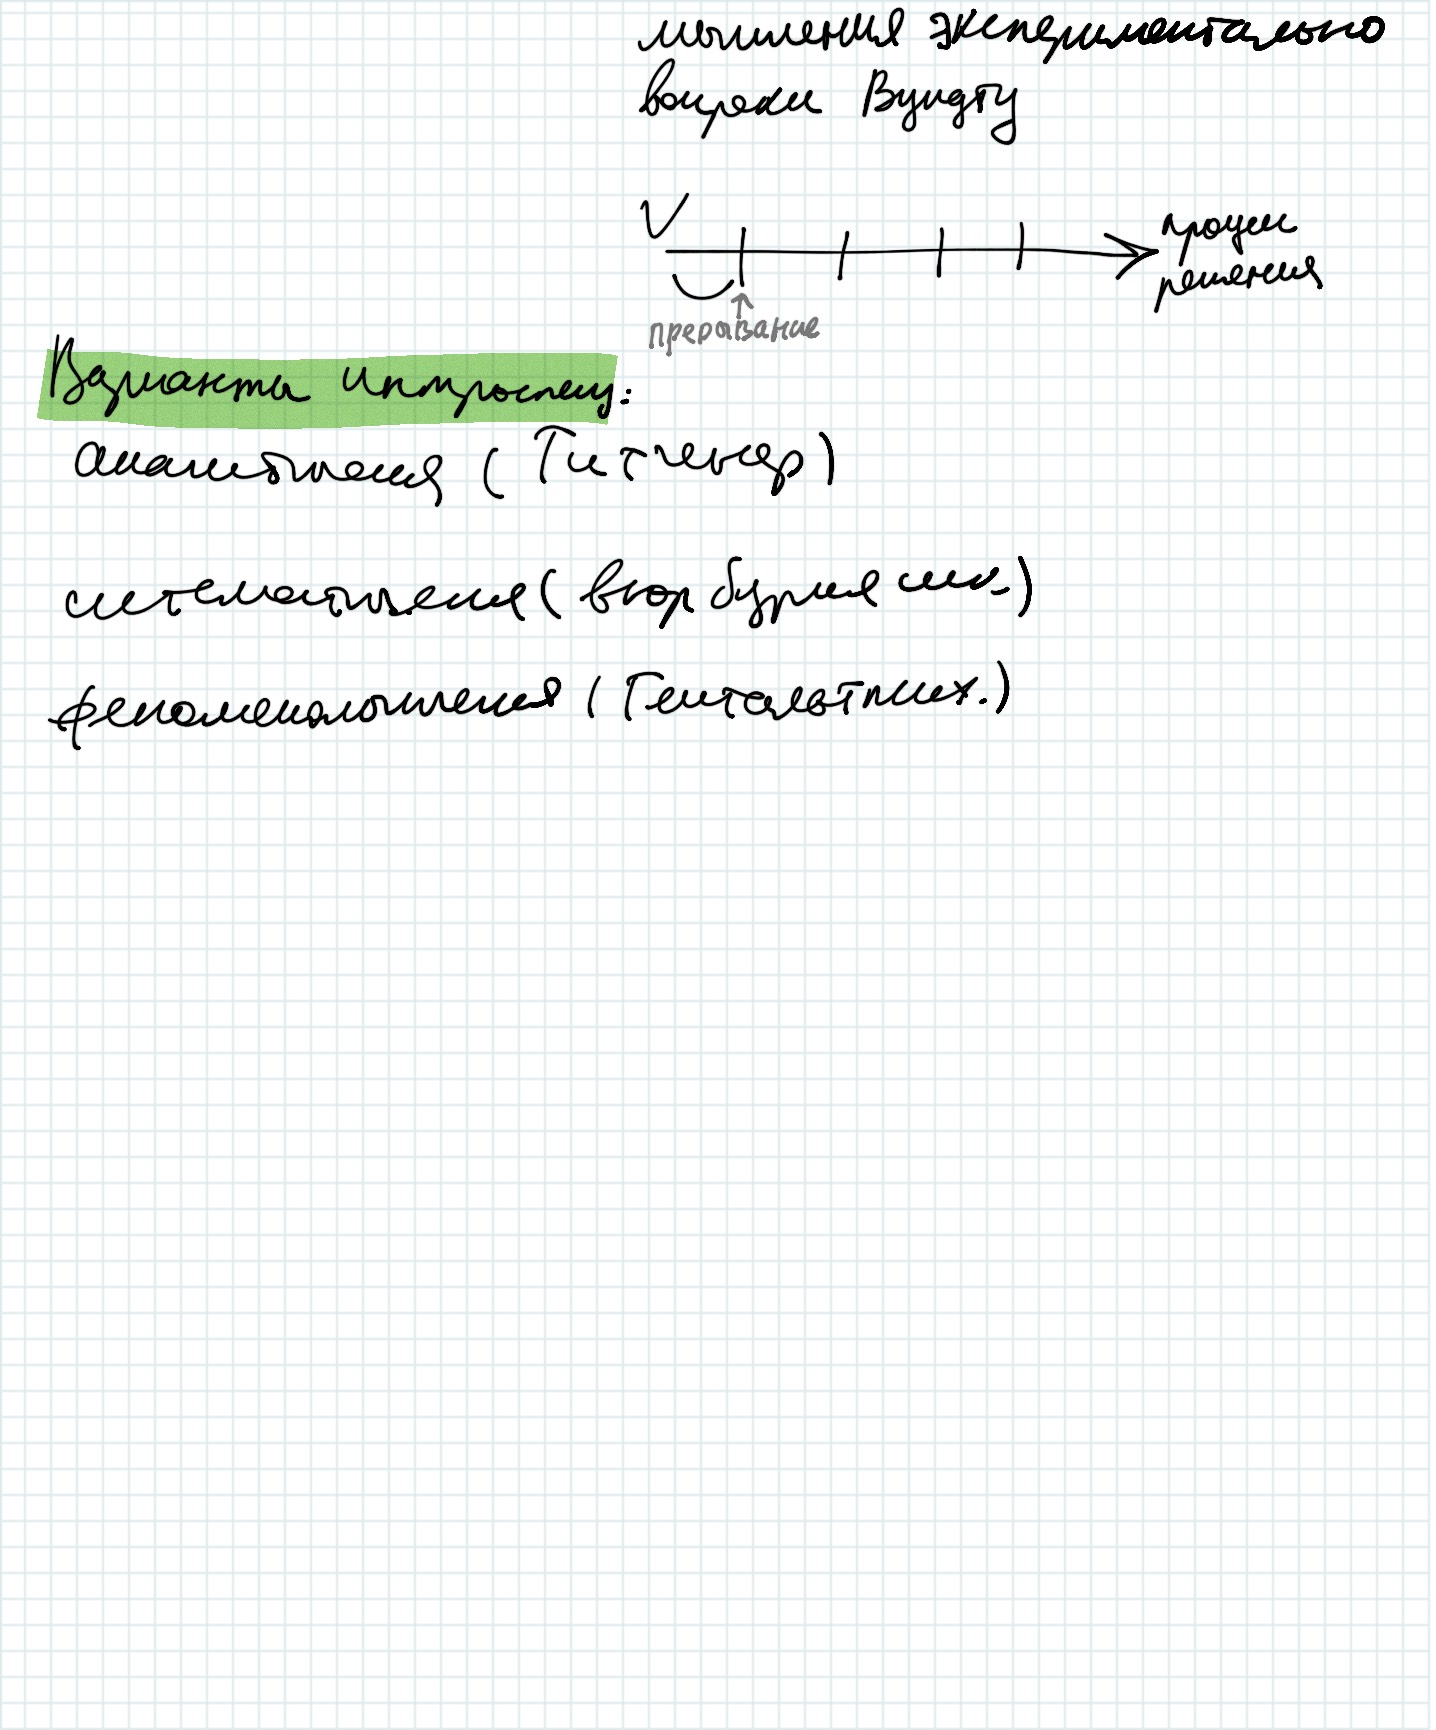 мышления экспериментально
вопреки Вундту
V
процесс
решения
прерывание
Варианты интроспекц:
аналитическая (Титченер)
систематическая (вюрбургская шк.)
феноменологическая (Гештальтпсих.)